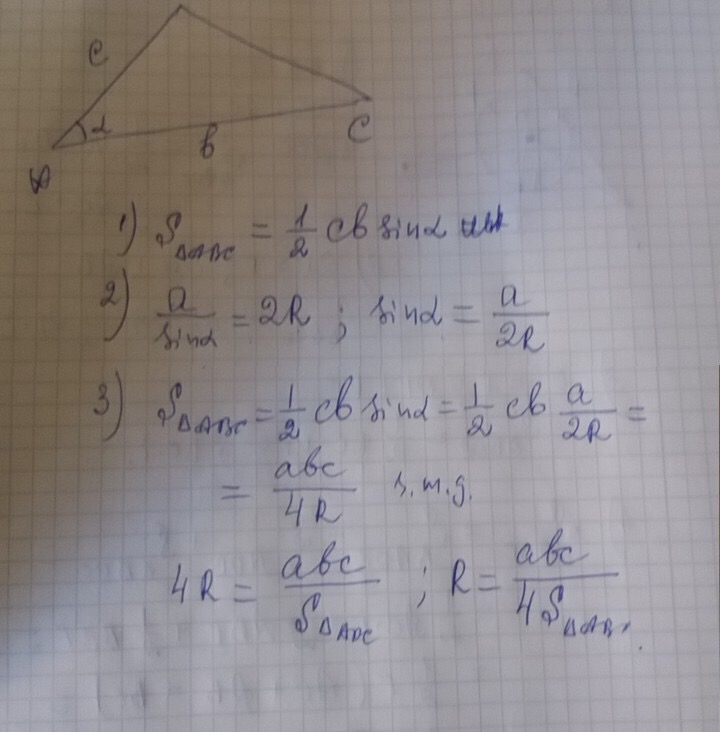 c
α
b
C
A
1) S△ABC = 1/2 cb sinα
2) a/sinα = 2R ; sinα = a/2R
3) S△ABC = 1/2 cb sinα = 1/2 cb a/2R =
= abc/4R з.т.д.
4R = abc/S△ABC ; R = abc/4S△AB